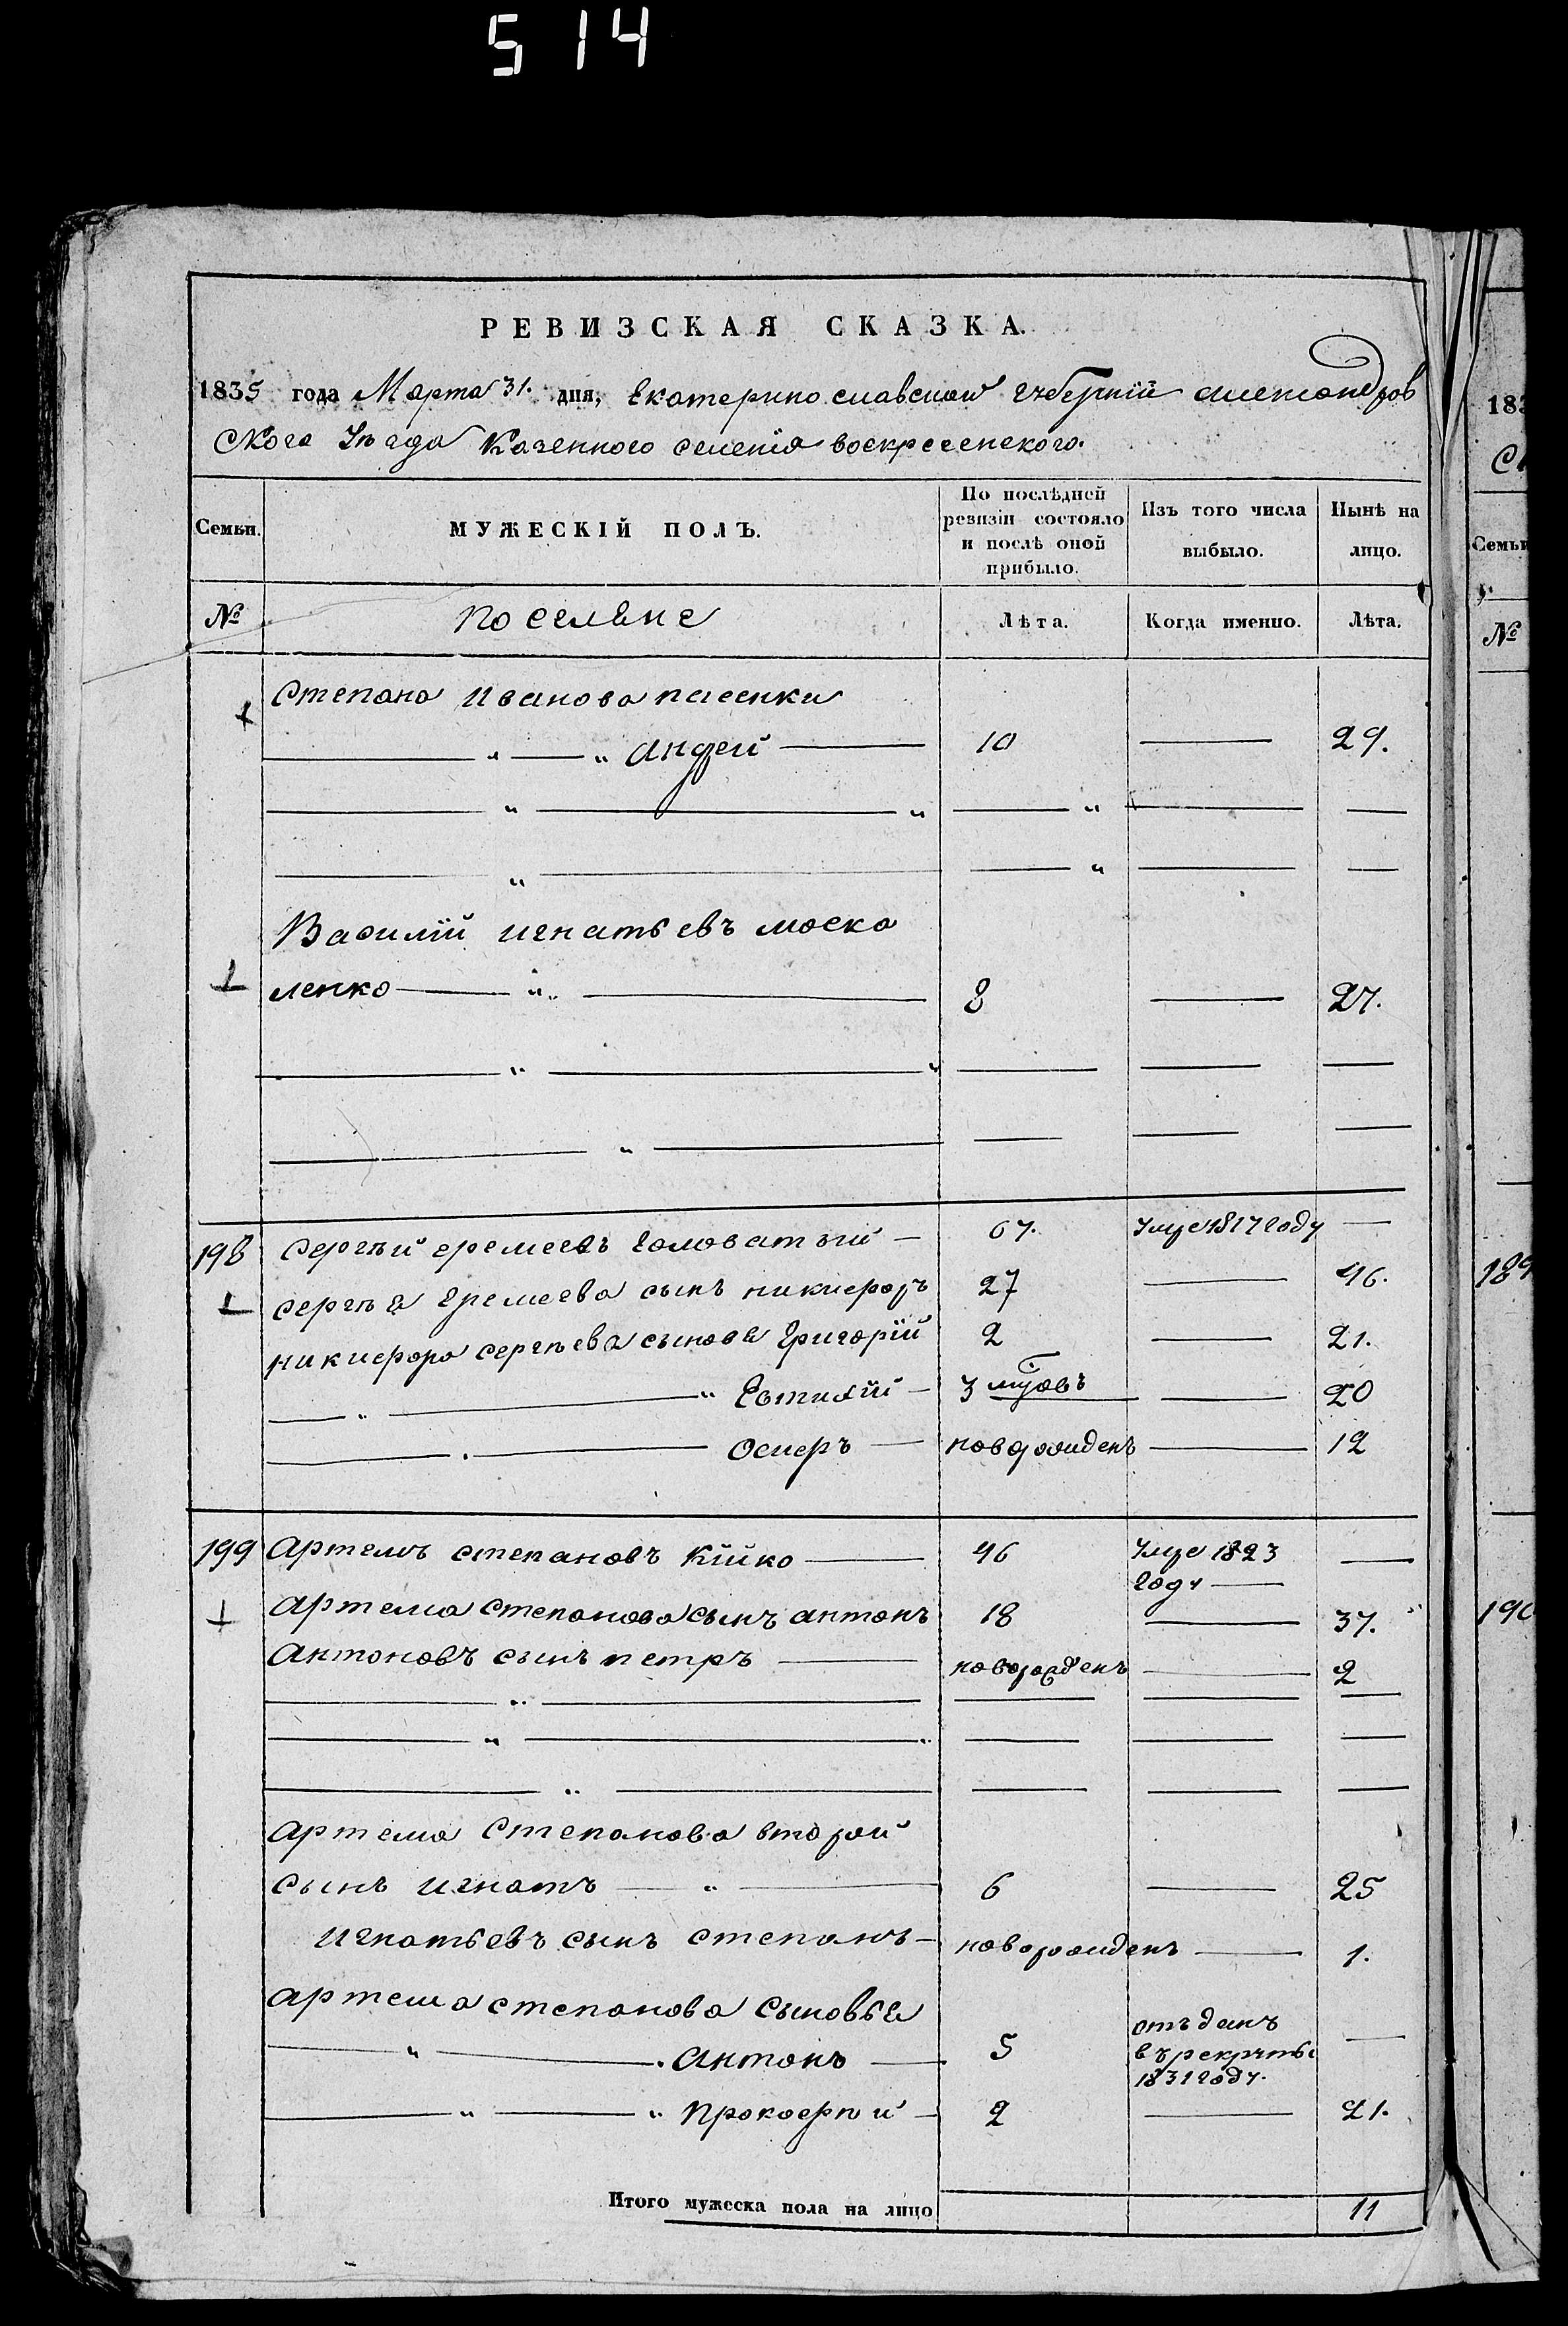 514
РЕВИЗСКАЯ СКАЗКА.
1835 года Марта 31. дня, Екатеринославской губернiй александров
ского Уезда Казенного селенiя воскресенского.
Семьи. МУЖЕСКIЙ ПОЛЪ. По послѣдней ревизiи состояло и послѣ оной прибыло. Изъ того числа выбыло. Нынѣ на лицо.
№ поселяне Лѣта. Когда именно. Лѣта.
Степана Иванова пасенки
" " андрей 10 29.
Василiй игнатьевъ моска
ленко 8 27.
198 Сергѣй еремеевъ головатый 67. Умре 1817 году
сергѣя еремеева сынъ никиеоръ 27 46.
никиеора сергѣева сыновя Григорiй 2 21.
" " Евтихiй 3 20
" Осиеръ новорожденъ 12
199 Артемъ степановъ Кiйко 46 Умре 1823
году
Артема степанова сынъ антонъ 18 37.
Антоновъ сынъ петръ новорожденъ 2
Артема Степанова второй
сынъ игнатъ " 6 25
Игнатьевъ сынъ степанъ новорожденъ 1.
Артема степанова сыновья
отъданъ
" Антонъ 5 въ рекруты
1831 году.
" " Прокоерiй 2 21.
Итого мужеска пола на лицо 11
183
С
Семьи
№
189
190